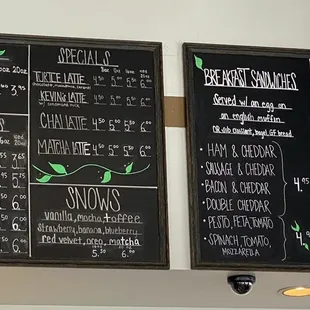 oz 20oz
3.95
SPECIALS
TURTLE LATTE 4.50 5.00 6.00
KEVIN'S LATTE 4.50 5.00 6.00
CHAI LATTE 4.50 5.00 6.00
MATCHA LATTE 4.50 5.00 6.00
SNOWS
vanilla, mocha + toffee
strawberry, banana, blueberry
red velvet, oreo, matcha
5.50 6.50
BREAKFAST SANDWICHES
Served w/ an egg on
an english muffin
OR sub croissant, bagel, GF bread
• HAM & CHEDDAR
• SAUSAGE & CHEDDAR
• BACON & CHEDDAR
• DOUBLE CHEDDAR
4.95
• PESTO, FETA, TOMATO
• SPINACH, TOMATO,
MOZZARELLA